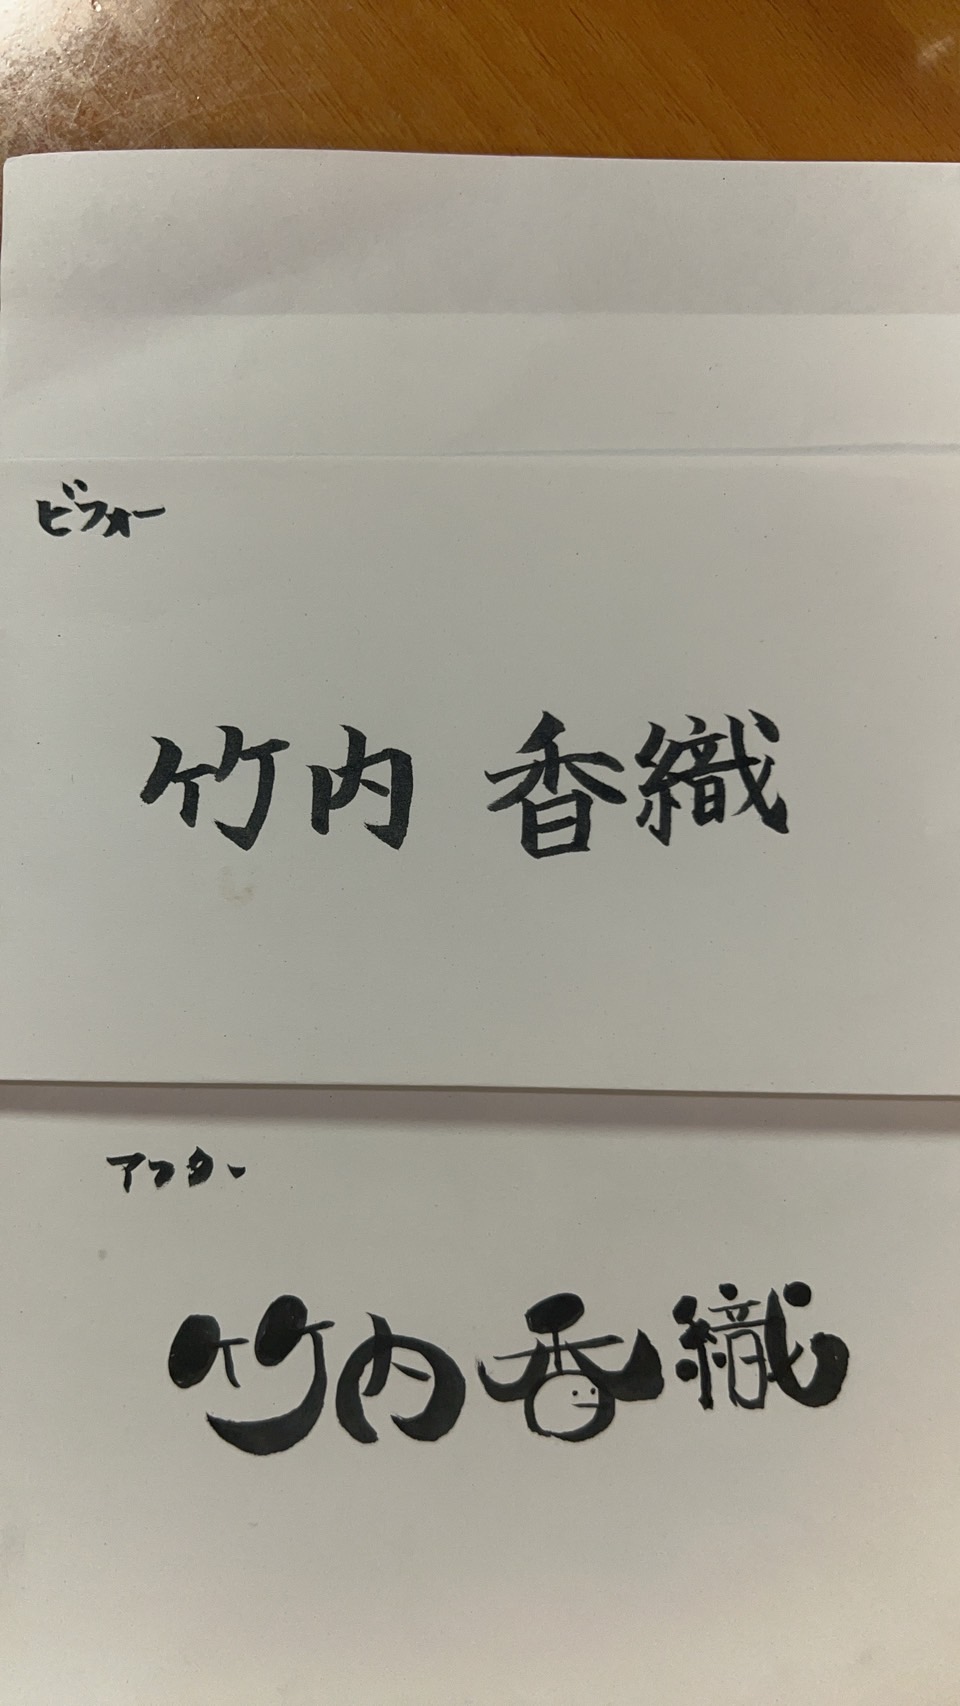 ビフォー
竹内 香織
アフター
竹内香織